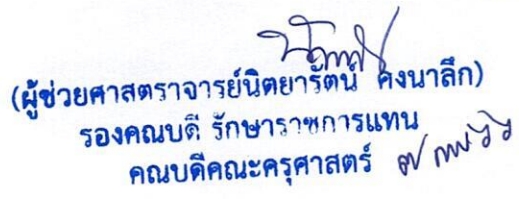 (ผู้ช่วยศาสตราจารย์นิตยารัตน์ คงนาลึก)
รองคณบดี รักษาราชการแทน
คณบดีคณะครุศาสตร์